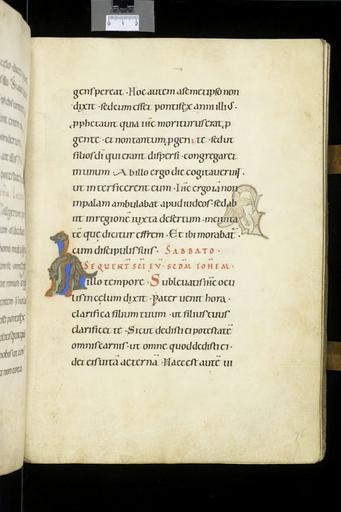 gens pereat · Hoc autem a semetipso non
dixit · sed cum esset pontifex anni illius ·
pphetauit quia ihc moriturus erat p
gente · et non tantum p gente · sed ut
filios di qui erant dispersi · congregaret
in unum · Ab illo ergo die cogitauerunt
ut interficerent eum · Ihc ergo ia non
in palam ambulabat apud iudeos · sed abiit
in regione iuxta desertum · in ciuita
te que dicitur effrem · Et ibi morabat
cum discipulis suis · SABBATO ·
SEQUENT SCI EV · SCDM IOHEM ·
In illo tempore · Subleuatis ihc ocu
lis in celum dixit · Pater uenit hora ·
clarifica filium tuum · ut filius tuus
clarificet te · Sicut dedisti ei potestate
omnis carnis · ut omne quod dedisti ei ·
det eis uita aeterna · Haec est aute ui